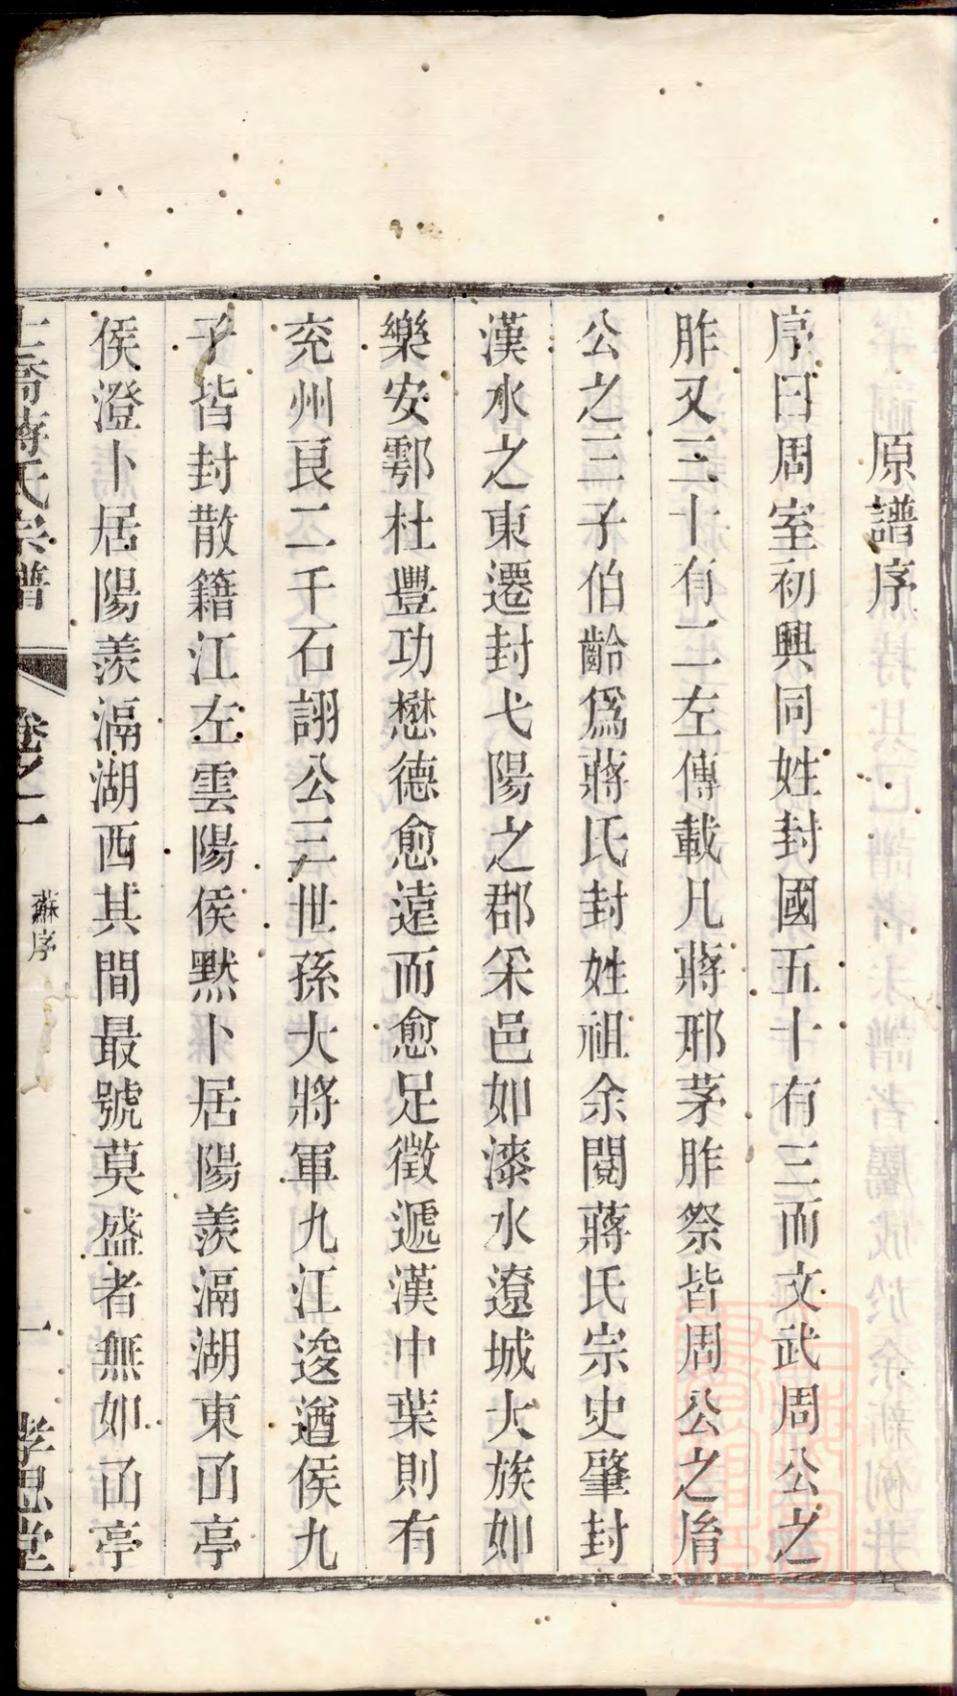 原譜序
序曰周室初興同姓封國五十有三而文武周公之
胙又三十有二左傳載凡蔣邢茅胙祭皆周公之胤
公之三子伯齡爲蔣氏封姓祖余閱蔣氏宗史肇封
漢水之東遷封弋陽之郡采邑如漆水遼城大族如
樂安鄠杜豐功懋德愈遠而愈足徵遞漢中葉則有
兖州艮二千石詡公三世孫大將軍九江逡遒侯九
子皆封散籍江左雲陽侯默卜居陽羨滆湖東㓱亭
侯澄卜居陽羨滆湖西其間最號莫盛者無如㓱亭
喬蔣氏宗譜
卷之一
蘇序
一
孝思堂